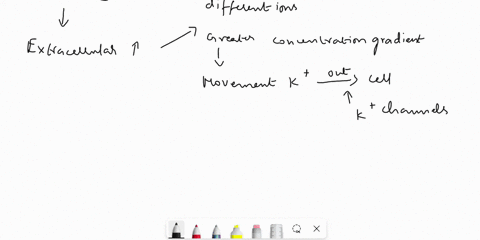 different ions
Extracellular ↑
Greater concentration gradient
Movement K+ out → cell
K+ channels